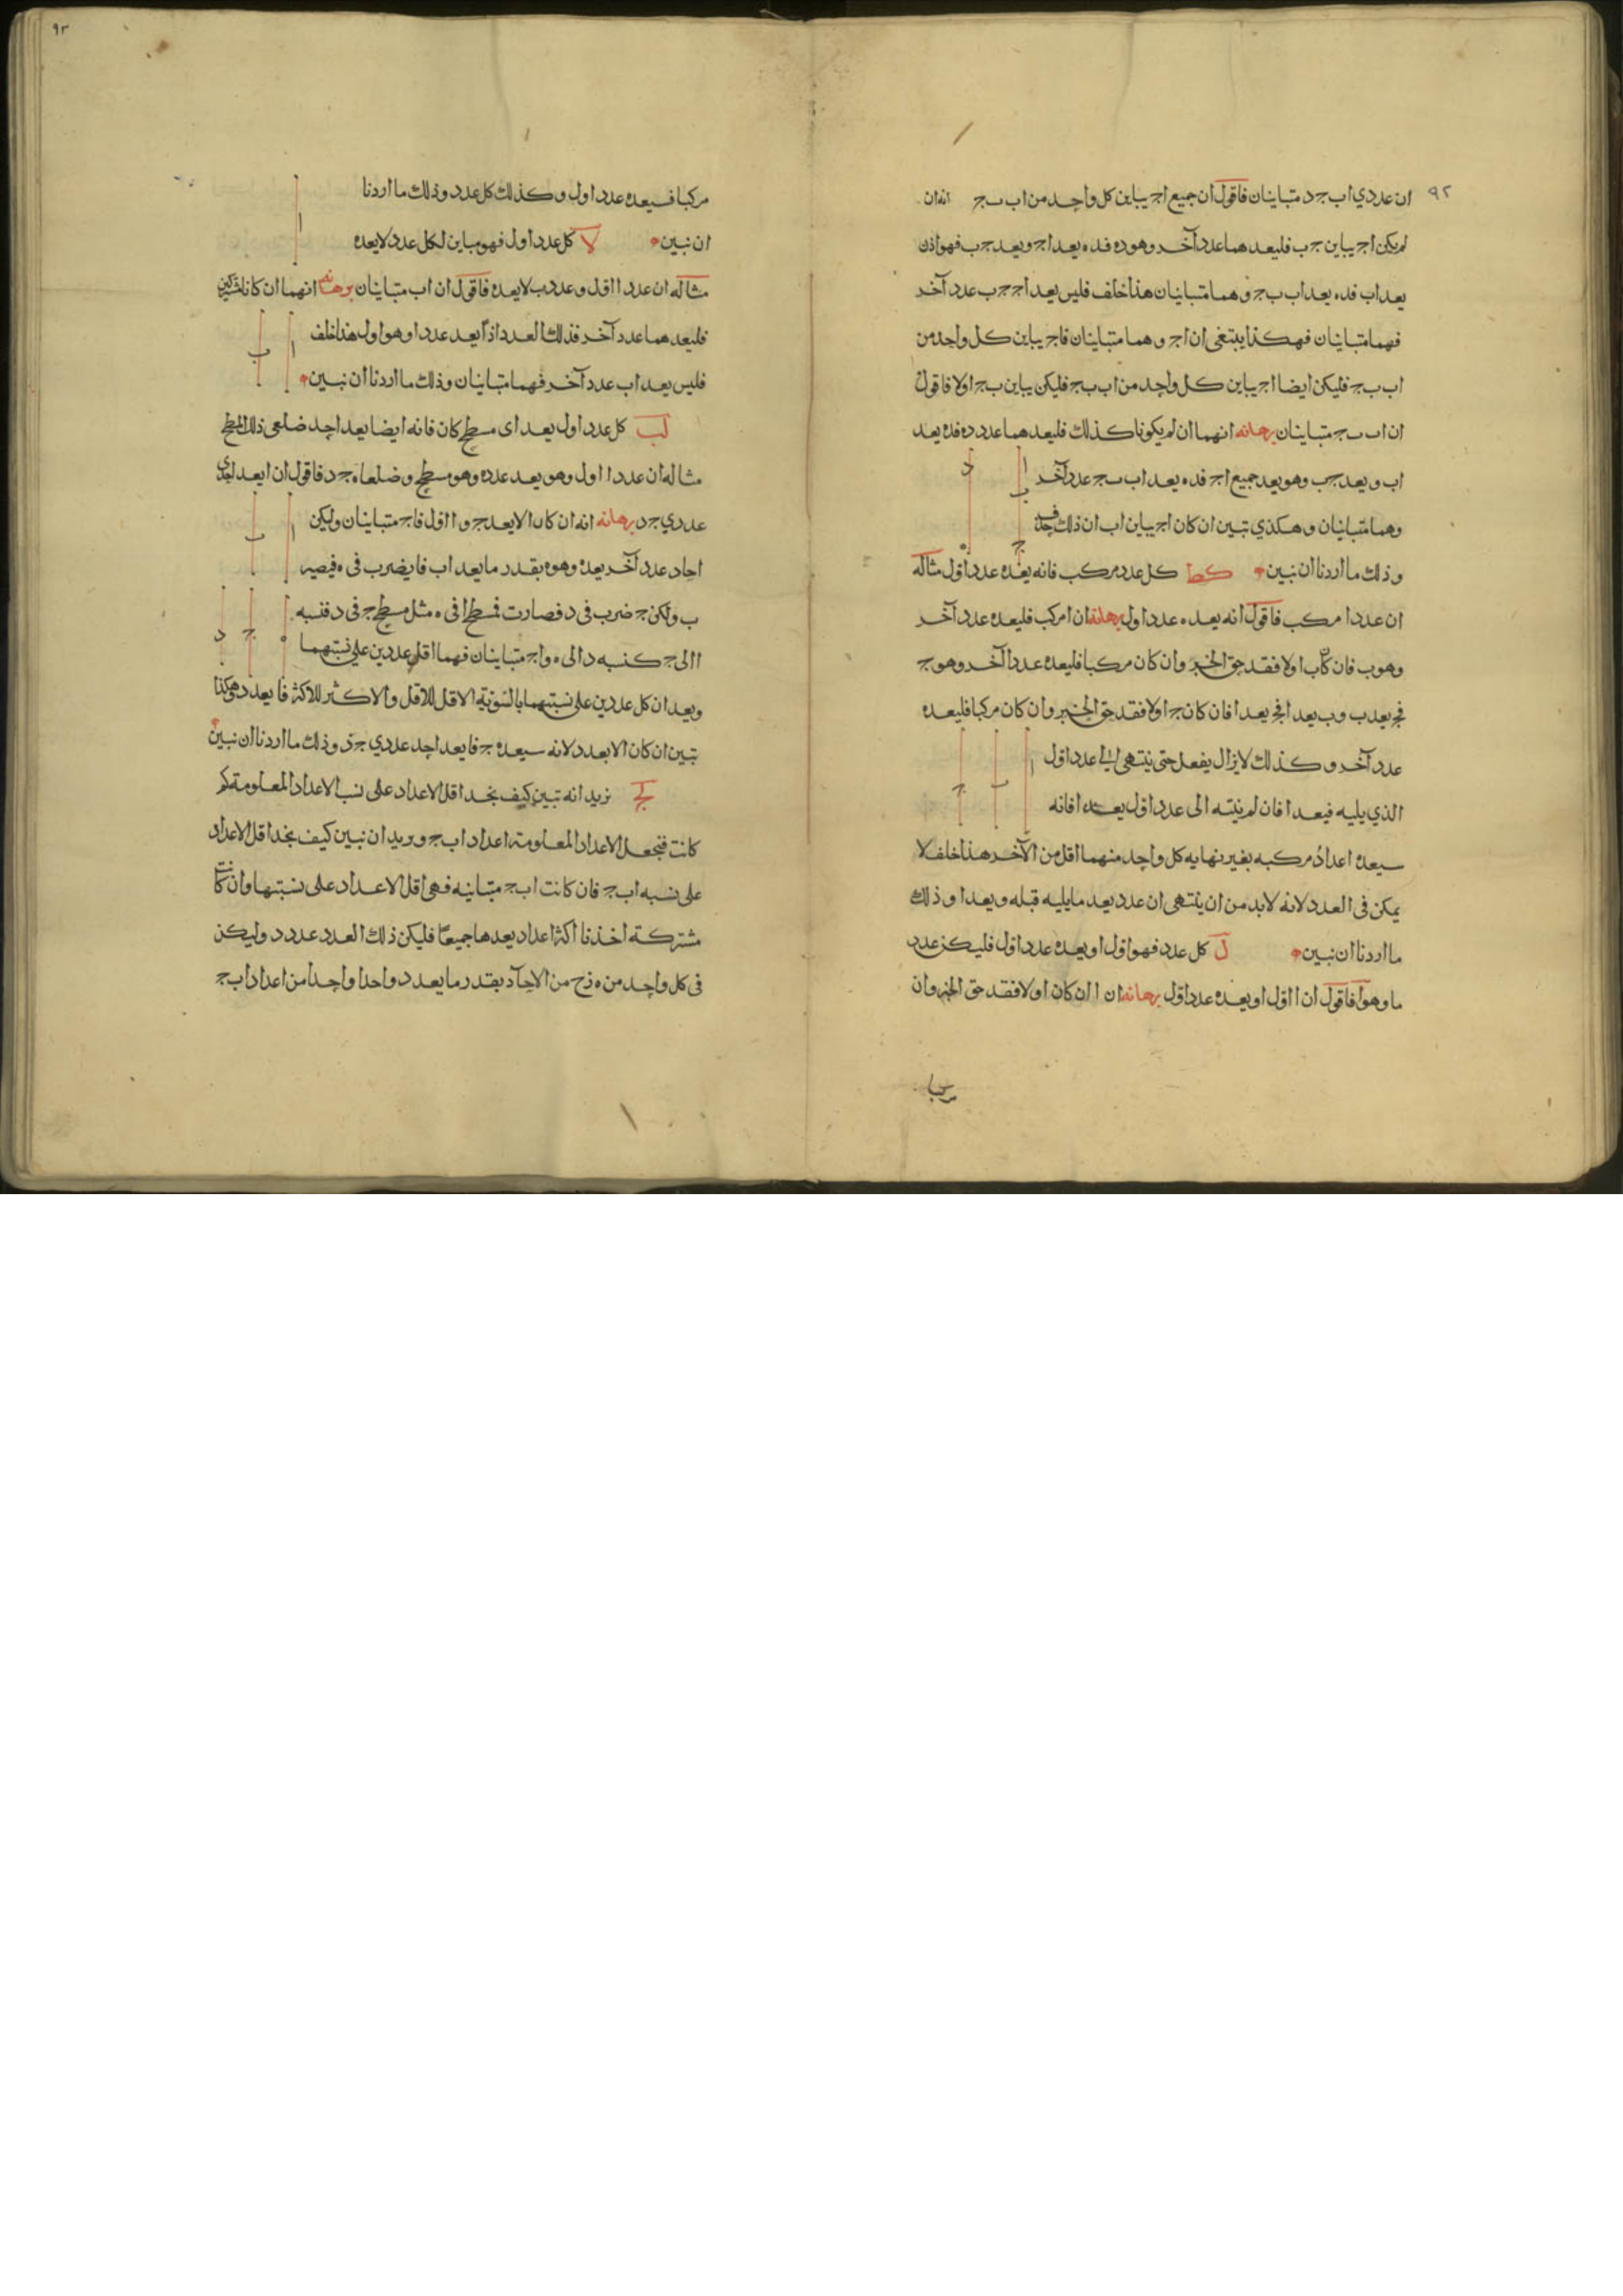 ٩٢
ان عددي اب بج د متباينان فاقول ان جميع اج يباين كل واحد من اب بج انه ان
لم يكن اج يباين جب فليعدهما عدد آخر وهو ده فده يعد اج ويعد جب فهو اذن
يعد اب فده يعد اب بج وهما متباينان هذا خلف فليس يعد اج جب عدد آخر
فهما متباينان فهكذا ينبغي ان اج وهما متباينان فاج يباين كل واحد من
اب بج فليكن ايضا اج يباين كل واحد من اب بج فليكن يباين بج اولا فاقول
ان اب بج متباينان برهانه انهما ان لم يكونا كذلك فليعدهما عدد ده فده يعد
اب ويعد جب وهو يعد جميع اج فده يعد اب بج عدد آخر
وهما متباينان وهكذي تبين ان كان اج يباين اب ان ذلك
وذلك ما اردنا ان نبين كط كل عدد مركب فانه يعده عدد اول مثاله
ان عدد ا مركب فاقول انه يعده عدد اول برهانه ان ا مركب فليعده عدد آخر
وهو ب فان كان ب اولا فقد حق الخبر وان كان مركبا فليعده عددا آخر وهو ج
فج يعد ب وب يعد ا فج يعد ا فان كان ج اولا فقد حق الخبر وان كان مركبا فليعده
عدد آخر وكذلك لا يزال يفعل حتى ينتهى الى عدد اول
الذي يليه فيعد ا فان لم ينته الى عدد اول يعده ا فانه
سيعده اعداد مركبه بغير نهايه كل واحد منهما اقل من الآخر هذا خلف لا
يمكن فى العدد لانه لابد من ان ينتهى ان عدد يعد ما يليه قبله ويعد ا وذلك
ما اردنا ان نبين ل كل عدد فهو اول او يعده عدد اول فليكن عدد
ما وهو ا فاقول ان ا اول او يعده عدد اول برهانه ان ا ان كان اولا فقد حق الخبر وان
مركبا
٩٣
مركبا فسيعده عدد اول وكذلك كل عدد وذلك ما اردنا
ان نبين لا كل عدد اول فهو مباين لكل عدد لا يعده
مثاله ان عدد ا اول وعدد ب لا يعده فاقول ان اب متباينان برهانه انهما ان كانا مشتركين
فليعدهما عدد آخر فذلك العدد اذا يعد عدد ا وهو اول هذا خلف
فليس يعد اب عدد آخر فهما متباينان وذلك ما اردنا ان نبين
لب كل عدد اول يعد اى مسطح كان فانه ايضا يعد احد ضلعى ذلك المسطح
مثاله ان عدد ا اول وهو يعد عدد ه وهو مسطح وضلعاه ج د فاقول ان ا يعد احد
عددي ج د برهانه انه ان كان ا لا يعد ج و ا اول فاج متباينان وليكن
احاد عدد آخر يعده وهو ه بقدر ما يعد اب فا يضرب فى ه فيصير
ب وليكن ج ضرب فى د فصارت فمسطح ا فى ه مثل مسطح ج فى د فنسبه
ا الى ج كنسبه د الى ه واج متباينان فهما اقل عددين على نسبتهما
ويعدان كل عددين على نسبتهما بالسويه الاقل للاقل والاكثر للاكثر فا يعد د وهكذا
تبين ان كان ا لا يعد د لانه سيعده ج فا يعد احد عددي ج د وذلك ما اردنا ان نبين
لج نريد انه نبين كيف نجد اقل الاعداد على نسب الاعداد المعلومة كم
كانت فنجعل الاعداد المعلومة اعداد اب ج ونريد ان نبين كيف نجد اقل الاعداد
على نسبه اب ج فان كانت اب ج متباينه فهى اقل الاعداد على نسبتها وان كانت
مشتركة اخذنا اكثر اعداد يعدها جميعا فليكن ذلك العدد عدد د وليكن
فى كل واحد من ه ز ح من الاحاد بقدر ما يعد د واحدا واحدا من اعداد اب ج